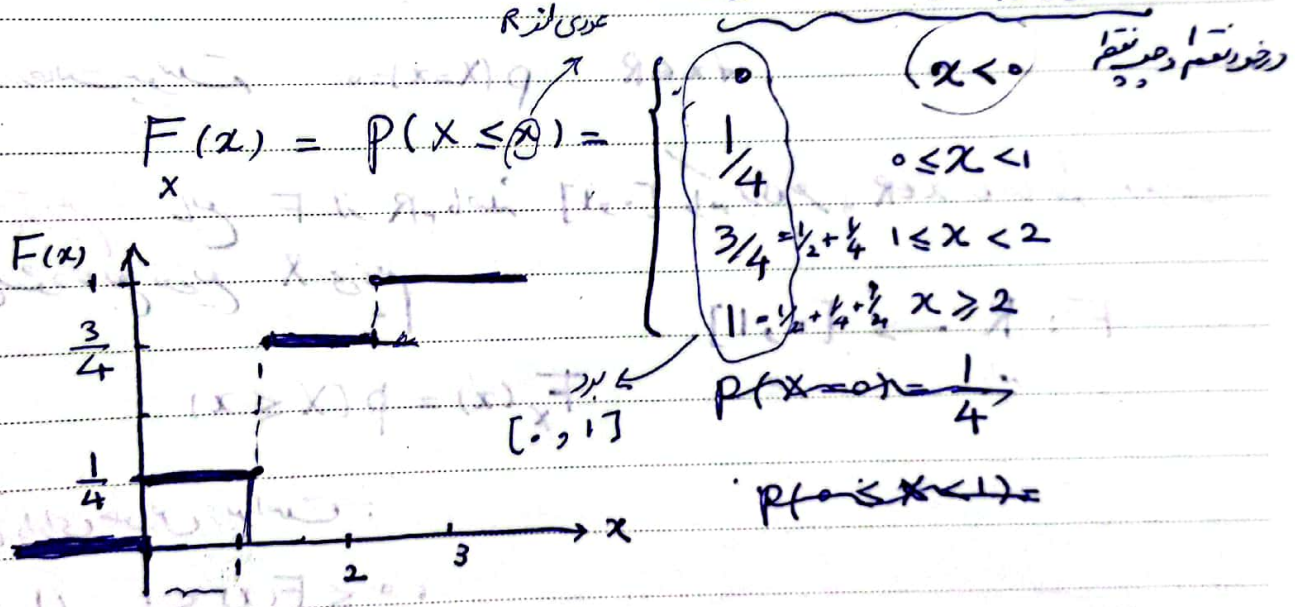 عددی از R
در خود نقطه و چپ نقطه
F_X(x) = P(X ≤ x) =
0 (x < 0
1/4 0 ≤ x < 1
3/4 = 1/2 + 1/4 1 ≤ x < 2
1 = 1/2 + 1/4 + 1/4 x ≥ 2
برد
[0, 1]
P(X = 0) = 1/4
P(0 ≤ X < 1) =
F(x)
1
3/4
1/4
1 2 3 x